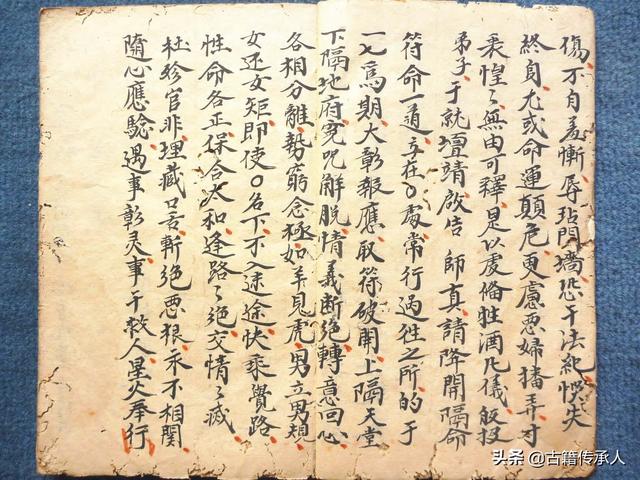 傷不自羞慚辱玷門墻恐干法紀悮失
終身尤或命運顛危更慮惡婦播弄寸
衷惶〻無由可釋是以虔俻牲酒凡儀皈投
弟子于就壇靖啟告師真請降開隔命
符命一道立在〇處常行過往之所的于
一七為期大彰報應取符破開上隔天堂
下隔地府冤咒解脫情義断絕轉意回心
各相分離勢窮念極如羊見虎男立男規
女還女矩即使〇名下不入迷途快乘覺路
性命各正保合太和逢路〻絕交情〻滅
杜珍官非埋藏口舌斬絕惡狠永不相関
隨心應騐遇事彰灵事干救人星火奉行
头条@古籍传承人